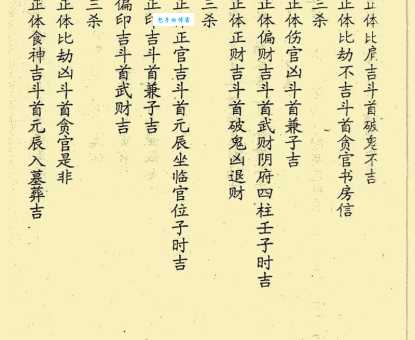 正体比肩吉斗首破鬼不吉
正体比劫不吉斗首贪官书房信
三杀
正体伤官凶斗首兼子吉
正体偏财吉斗首武财阴府四柱壬子时吉
正体正财吉斗首破鬼凶退财
三杀
正正官吉斗首元辰坐临官位子时吉
正印吉斗首兼子吉
偏印吉斗首武财吉
三杀
正体比劫凶斗首贪官是非
正体食神吉斗首元辰入墓葬吉